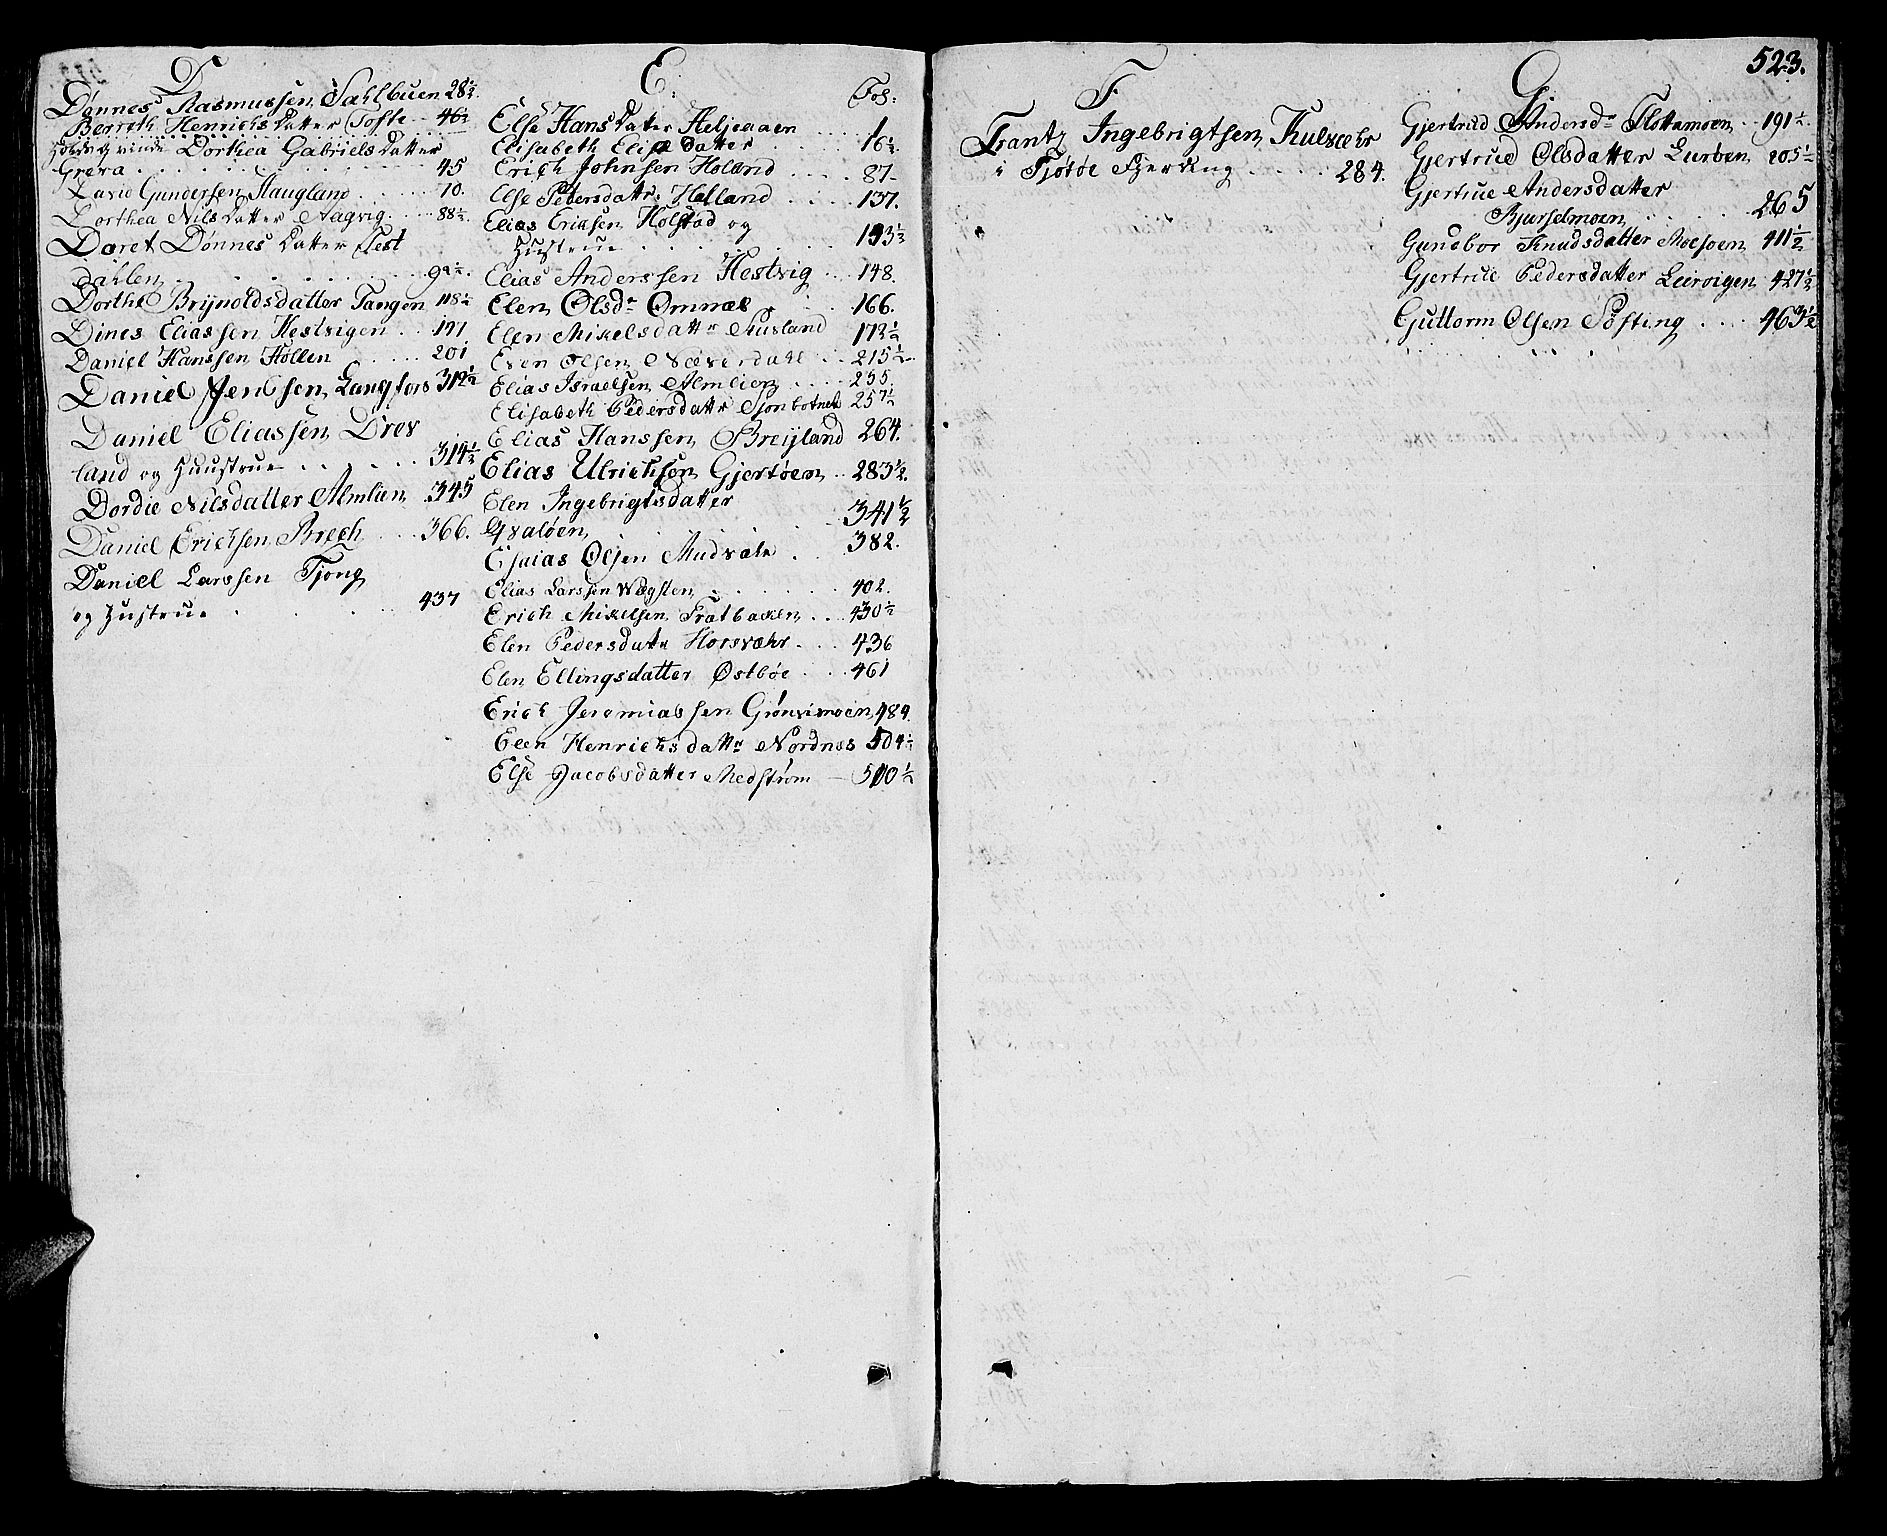 D
Dønnes Rasmussen Dahlbuen 28½.
Bereth Henrichsdatter Tofte 46½
Dorthea Gabrielsdatter
Grera 45
David Gundersen Haugland 70.
Dorthea Nilsdatter Aagvig 88½
Doret Dønnesdatter Test
dahlen 92½.
Dorthe Brijnoldsdatter Tangen 118½
Dines Eliassen Hestvigen 191
Daniel Hanssen Hollen 201
Daniel Jensen Langfors 312½
Daniel Eliassen Drev
land og Huustrue 314½
Dordie Nilsdatter Almlien 345
Daniel Erichsen Brech 366.
Daniel Larssen Tjong
og Hustrue 437
E. Fol:
Else Hansdatter Heljeaaen 1.
Elisabeth Eliædatter 16½.
Erich Johnsen Holand 87.
Else Petersdattr Halland 137.
Elias Erichsen Holstad og
Hustrue 143½
Elias Anderssen Hestvig 148.
Elen Olsdr Omnæs 166.
Elen Mikelsdattr Husland 172½
Even Olsen Næverdahl 215½
Elias Israelsen Almlien 235.
Elisabeth Pedersdattr Sjonbotnet 257½
Elias Hanssen Breijland 264.
Elias Ulrichsøn Gjerøen 283½.
Elen Ingebrigtsdatter
Qvaløen 341½
Esaias Olsen Mudvale 382.
Elias Larssen Wægsten 402.
Erich Mikelsen Fratbaken 430½
Elen Pedersdattr Horsvæhr 436
Elen Ellingsdatter Østbøe 461
Erich Jeremiassen Grønvimoen 484.
Elen Henrichsdattr Nordnes 504½
Else Jacobsdatter Medstrøm 510½
523.
F
Frantz Ingebrigtsen Kulvæhr
i Tjøtøe Fjerding 284.
G.
Gjertrud Andersdr Flottamoen 191½.
Gjertrue Olsdatter Lurben 205½
Gjertrue Andersdatter
Bjurselmoen 265
Gunebor Knudsdatter Moesoen 411½
Gjertrue Pedersdatter Leirvigen 427½
Guttorm Olsen Søfting 463½